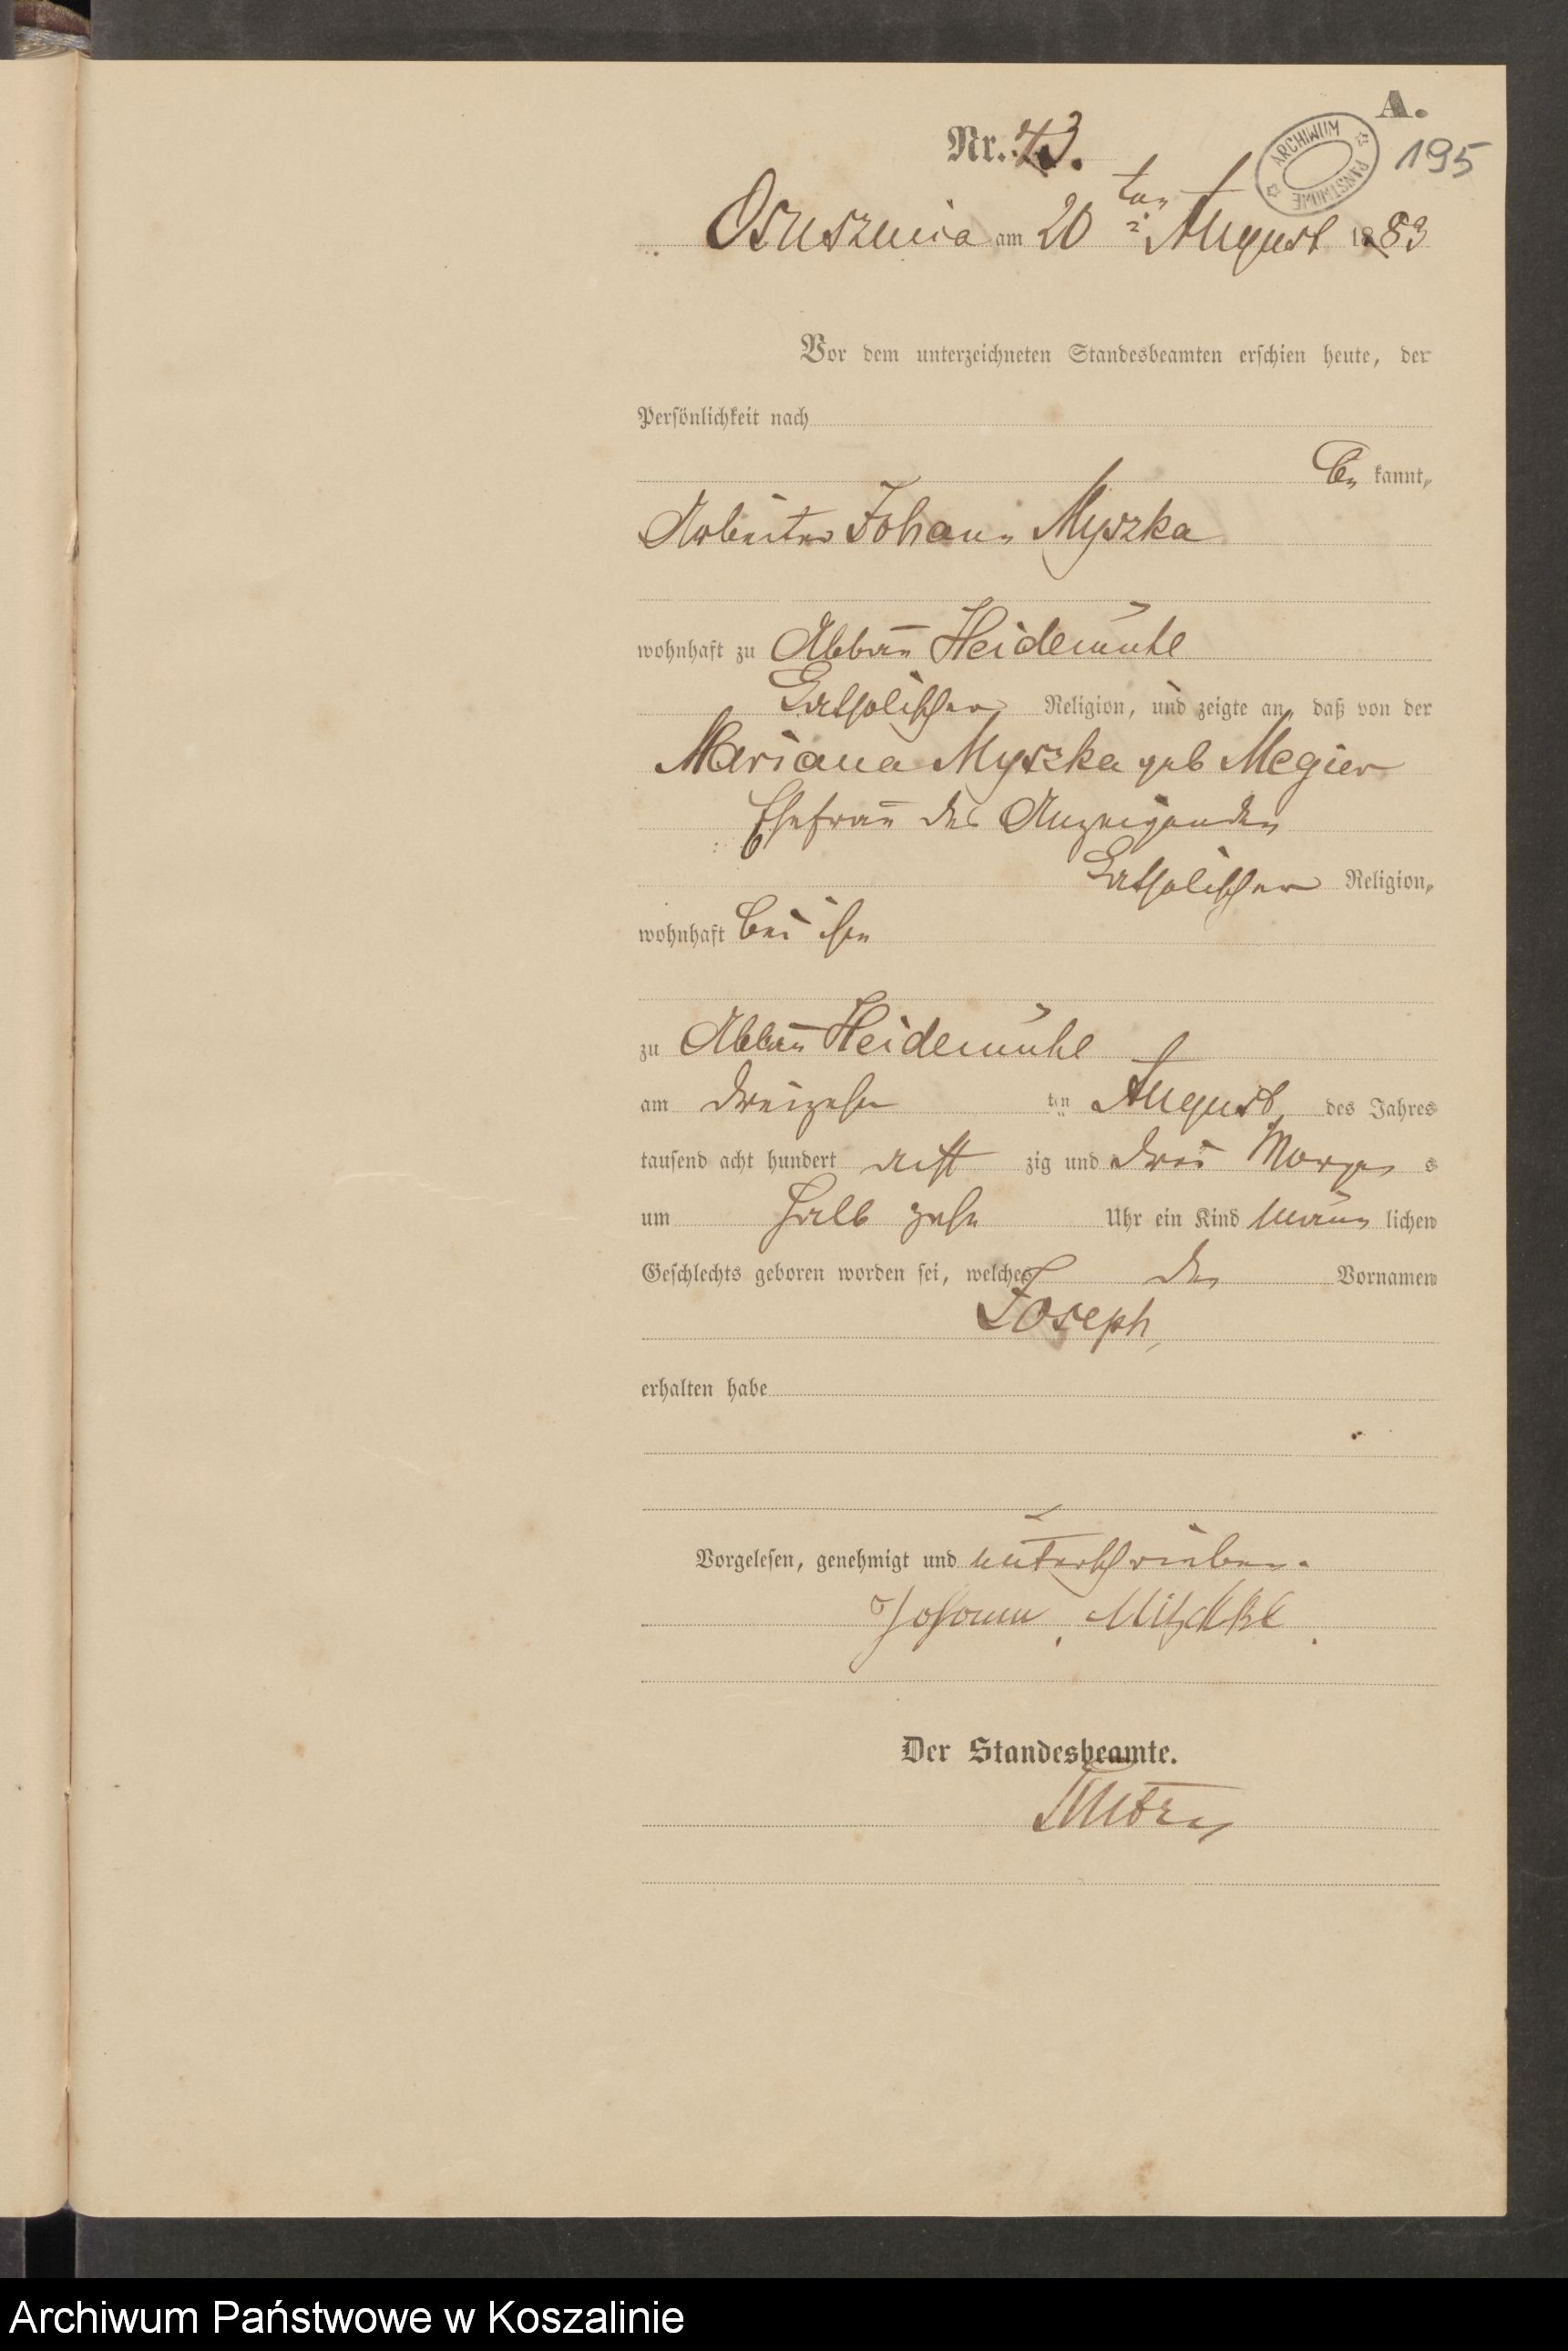 A.
Nr. 43.
ARCHIWUM PAŃSTWOWE
195
Osuszniça am 20 ten August 1883
Vor dem unterzeichneten Standesbeamten erschien heute, der
Persönlichkeit nach
be kannt,
Arbeiter Johann Myszka
wohnhaft zu Abbau Heidemühl
katholischer Religion, und zeigte an, daß von der
Mariana Myszka geb Megier
Ehefrau des Anzeigenden
katholischer Religion,
wohnhaft bei ihm
zu Abbau Heidemühl
am dreizehn ten August des Jahres
tausend acht hundert acht zig und drei Morgen s
um halb zehn Uhr ein Kind männ lichen
Geschlechts geboren worden sei, welches den Vornamen
Joseph
erhalten habe
Vorgelesen, genehmigt und unterschrieben.
Johann Mischke
Der Standesbeamte.
Archiwum Państwowe w Koszalinie